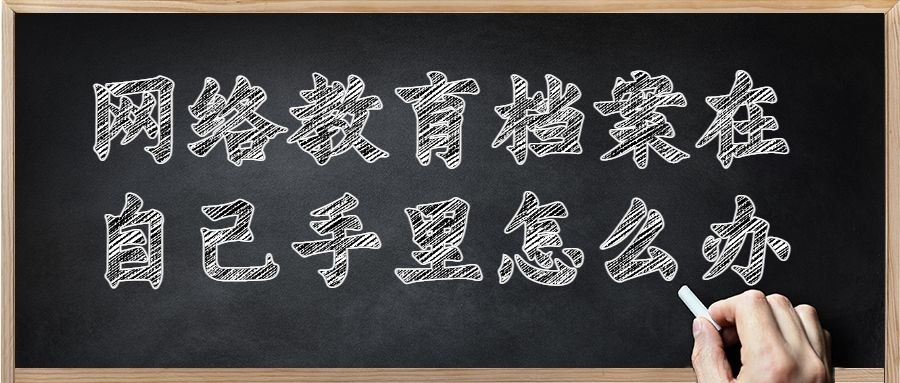 网络教育档案在
自己手里怎么办